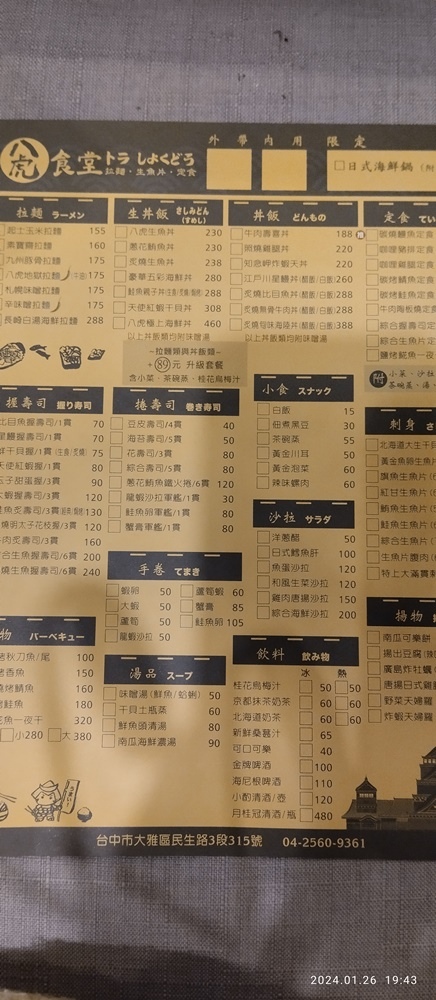 八虎 食堂 トラ しょくどう
拉麵・生魚片・定食
外帶 內用 限定
日式海鮮鍋
拉麵 ラーメン
起士玉米拉麵 155
160
九州豚骨拉麵 175
八虎地獄拉麵 175
札幌味噌拉麵 175
辛味噌拉麵 175
長崎白湯海鮮拉麵 288
生丼飯 さしみどん (すめし)
八虎生魚丼 230
蔥花鮪魚丼 230
炙燒生魚丼 238
豪華五彩海鮮丼 280
288
天使紅蝦干貝丼 308
八虎極上海鮮丼 460
以上丼飯類均附味噌湯
丼飯 どんもの
牛肉壽喜丼 188
照燒雞腿丼 220
知念岬炸蝦天丼 220
江戶川星鰻丼(醋飯/白飯) 260
炙燒比目魚丼(醋飯/白飯) 288
288
388
以上丼飯類均附味噌湯
定食
~拉麵類與丼飯類~
+89元 升級套餐
含小菜、茶碗蒸、桂花烏梅汁
附 小菜、沙拉
茶碗蒸、湯
握壽司 握り寿司
比目魚握壽司/1貫 70
星鰻握壽司/1貫 70
75
天使紅蝦握/1貫 80
玉子甜蛋握/3貫 90
大蝦握壽司/3貫 120
130
燒明太子花枝握/3貫 120
牛肉炙壽司/3貫 160
綜合生魚握壽司/6貫 200
炙燒生魚握壽司/6貫 240
捲壽司 巻き寿司
豆皮壽司/4貫 40
海苔壽司/6貫 50
花壽司/3貫 80
綜合壽司/5貫 80
蔥花鮪魚鐵火捲/6貫 120
龍蝦沙拉軍艦/1貫 30
鮭魚卵軍艦/1貫 80
蟹膏軍艦/1貫 80
小食 スナック
白飯 15
佃煮黑豆 30
茶碗蒸 55
黃金川耳 50
黃金泡菜 60
辣味螺肉 60
刺身
北海道大生干貝
黃金魚卵生魚片
旗魚生魚片
紅甘生魚片
鮪魚生魚片
鮭魚生魚片
綜合生魚片
生魚片腹肉
特上大滿貫刺
沙拉 サラダ
洋蔥醋 50
日式鱈魚肝 100
魚蛋沙拉 120
和風生菜沙拉 120
雞肉唐揚沙拉 150
綜合海鮮沙拉 200
手巻 てまき
蝦卵 50
蘆筍蝦 60
大蝦 50
蟹膏 85
蘆筍 50
鮭魚卵 105
龍蝦沙拉 50
物 バーベキュー
烤秋刀魚/尾 100
烤香魚 150
鹽烤鯖魚 160
烤鮭魚 180
花魚一夜干 320
小280 大380
湯品 スープ
味噌湯(鮮魚/蛤蜊) 50
干貝土瓶蒸 60
鮮魚頭清湯 80
南瓜海鮮濃湯 90
飲料 飲み物
冰 熱
桂花烏梅汁 50 50
京都抹茶奶茶 60 60
北海道奶茶 50 50
新鮮桑葚汁 65
可口可樂 40
金牌啤酒 100
海尼根啤酒 110
小酌清酒/壺 120
月桂冠清酒/瓶 480
揚物
南瓜可樂餅
揚出豆腐
廣島炸牡蠣
唐揚日式雞
野菜天婦羅
炸蝦天婦羅
台中市大雅區民生路3段315號 04-2560-9361
2024.01.26 19:43